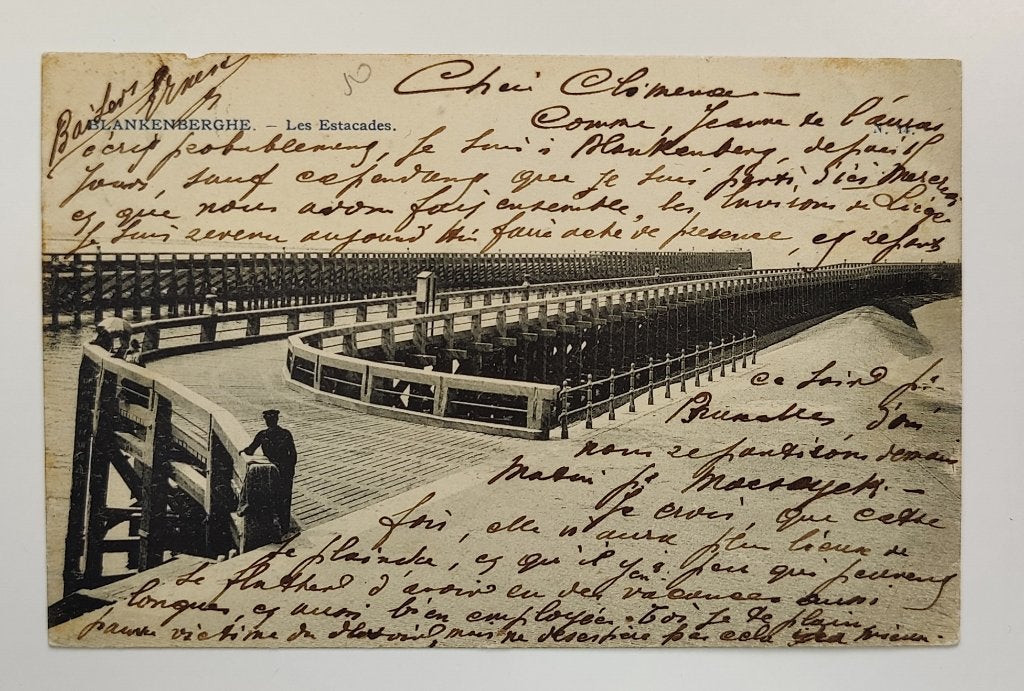 Baisers
Ernest
Cher Clomena —
BLANKENBERGHE. — Les Estacades.
N. 11.
Comme, Jeanne te l'aura
écrit probablement, Je suis à Blankenberg, depuis 15
Jours, sauf cependant que je suis parti d'ici Mercredi
et que nous avons fait ensemble, les Environs de Liège
Je suis revenu aujourd'hui faire acte de présence, et repars
ce soir pr
Bruxelles d'où
nous repartirons demain
Matin pr
Je crois, que cette
fois, elle n'aura plus lieu de
se plaindre, et qu'il y en a peu qui peuvent
se flatter d'avoir eu des vacances aussi
longues et aussi bien employées. Toi je te plain
pauvre victime du devoir, mais ne désespère pas cela ira mieux.